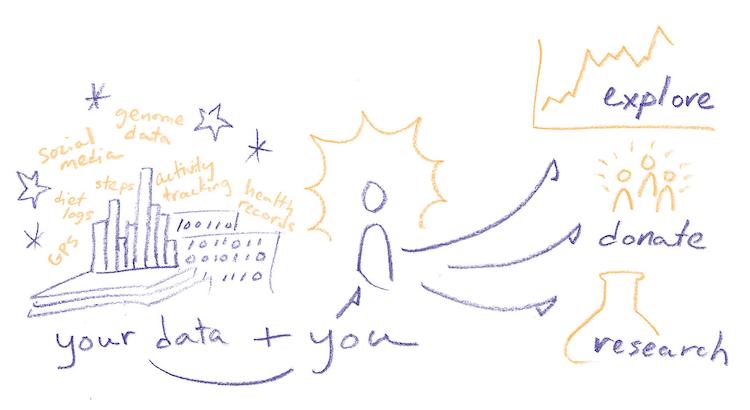 genome
data
social
media
activity
tracking
steps
diet
logs
health
records
GPS
1001101
your data + you
explore
donate
research